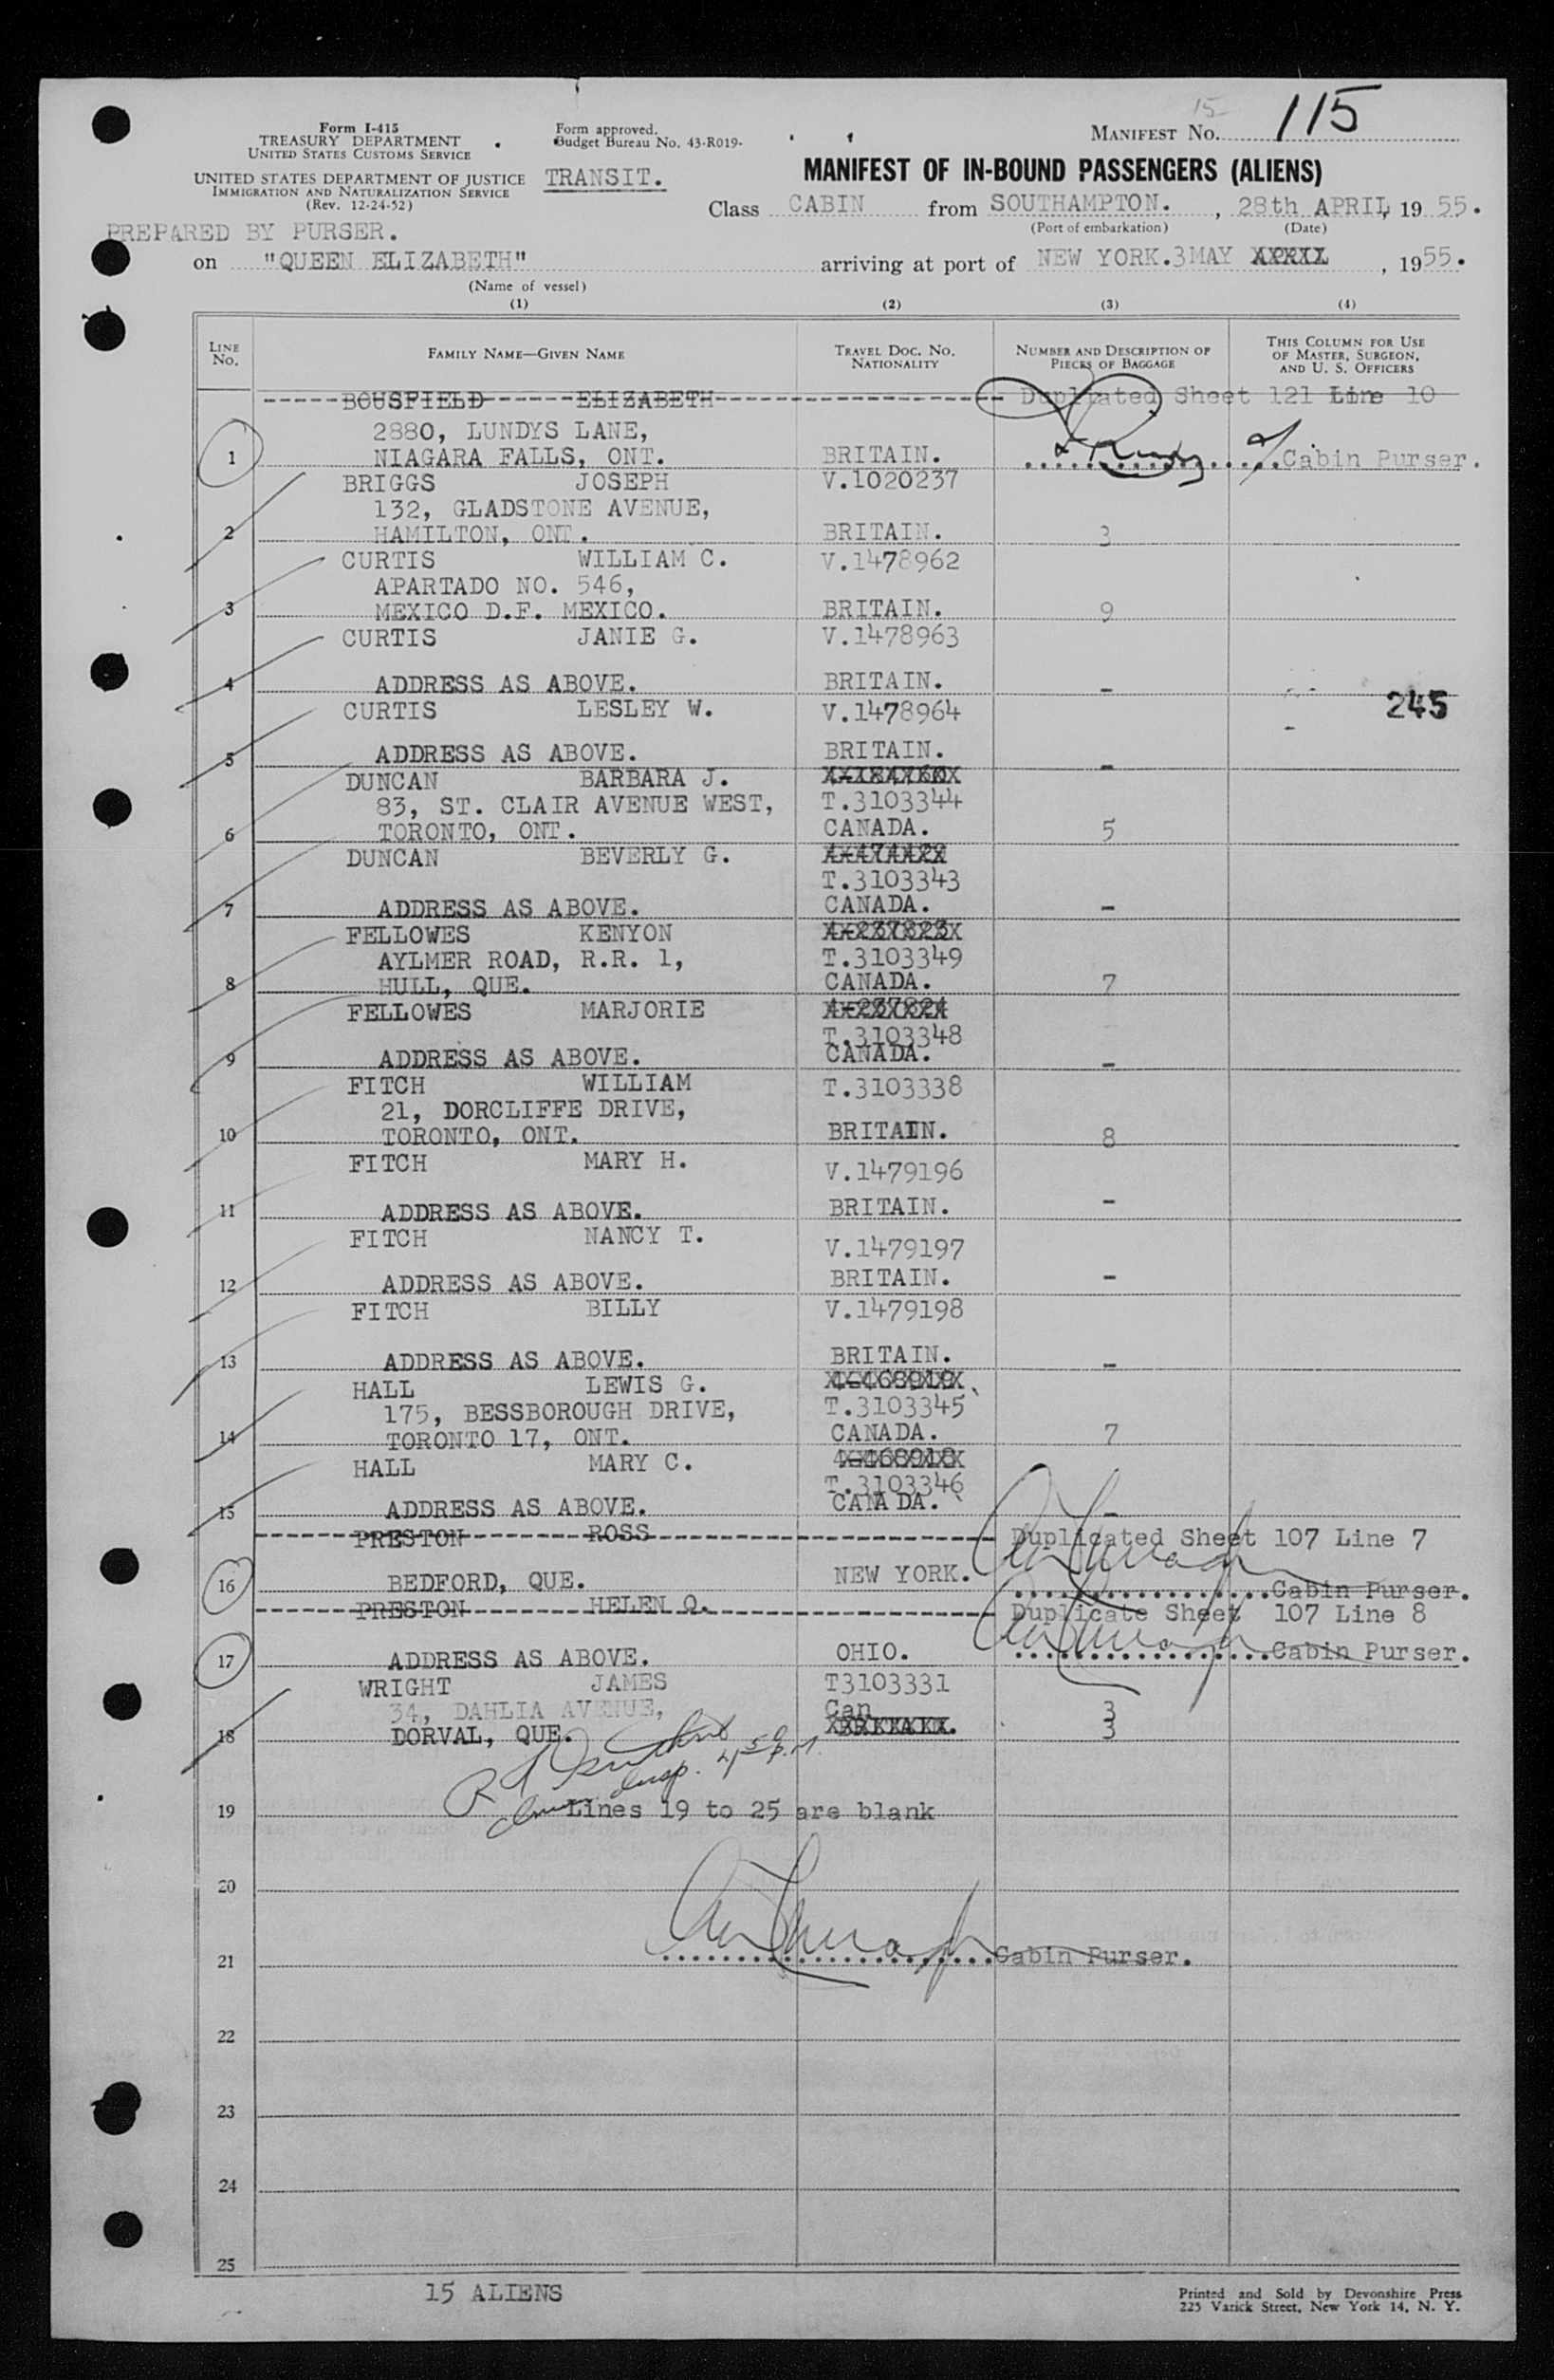 15
115
Form I-415
TREASURY DEPARTMENT
UNITED STATES CUSTOMS SERVICE
Form approved.
Budget Bureau No. 43-R019-
MANIFEST No.
UNITED STATES DEPARTMENT OF JUSTICE
IMMIGRATION AND NATURALIZATION SERVICE
(Rev. 12-24-52)
TRANSIT.
MANIFEST OF IN-BOUND PASSENGERS (ALIENS)
Class CABIN from SOUTHAMPTON. , 28th APRIL, 1955.
(Port of embarkation) (Date)
PREPARED BY PURSER.
on "QUEEN ELIZABETH" arriving at port of NEW YORK. 3 MAY , 1955.
(Name of vessel)
(1) (2) (3) (4)
LINE No. FAMILY NAME—GIVEN NAME TRAVEL DOC. NO. NATIONALITY NUMBER AND DESCRIPTION OF PIECES OF BAGGAGE THIS COLUMN FOR USE OF MASTER, SURGEON, AND U. S. OFFICERS
BOUSFIELD ELIZABETH Duplicated Sheet 121 Line 10
2880, LUNDYS LANE,
1 NIAGARA FALLS, ONT. BRITAIN. Cabin Purser.
BRIGGS JOSEPH V.1020237
132, GLADSTONE AVENUE,
2 HAMILTON, ONT. BRITAIN. 3
CURTIS WILLIAM C. V.1478962
APARTADO NO. 546,
3 MEXICO D.F. MEXICO. BRITAIN. 9
CURTIS JANIE G. V.1478963
4 ADDRESS AS ABOVE. BRITAIN. -
245
CURTIS LESLEY W. V.1478964
5 ADDRESS AS ABOVE. BRITAIN. -
DUNCAN BARBARA J.
83, ST. CLAIR AVENUE WEST, T.3103344
6 TORONTO, ONT. CANADA. 5
DUNCAN BEVERLY G.
T.3103343
7 ADDRESS AS ABOVE. CANADA. -
FELLOWES KENYON 4-237823
AYLMER ROAD, R.R. 1, T.3103349
8 HULL, QUE. CANADA. 7
FELLOWES MARJORIE 4-237824
T.3103348
9 ADDRESS AS ABOVE. CANADA. -
FITCH WILLIAM T.3103338
21, DORCLIFFE DRIVE,
10 TORONTO, ONT. BRITAIN. 8
FITCH MARY H. V.1479196
11 ADDRESS AS ABOVE. BRITAIN. -
FITCH NANCY T. V.1479197
12 ADDRESS AS ABOVE. BRITAIN. -
FITCH BILLY V.1479198
13 ADDRESS AS ABOVE. BRITAIN. -
HALL LEWIS G. 4-468919
175, BESSBOROUGH DRIVE, T.3103345
14 TORONTO 17, ONT. CANADA. 7
HALL MARY C. 4-468918
T.3103346
15 ADDRESS AS ABOVE. CANADA. -
PRESTON ROSS Duplicated Sheet 107 Line 7
16 BEDFORD, QUE. NEW YORK. Cabin Purser.
PRESTON HELEN Q. Duplicate Sheet 107 Line 8
17 ADDRESS AS ABOVE. OHIO. Cabin Purser.
WRIGHT JAMES T3103331
34, DAHLIA AVENUE, Can 3
18 DORVAL, QUE. 3
Insp.
19 Lines 19 to 25 are blank
20
21 Cabin Purser.
22
23
24
25
15 ALIENS
Printed and Sold by Devonshire Press
225 Varick Street, New York 14, N. Y.